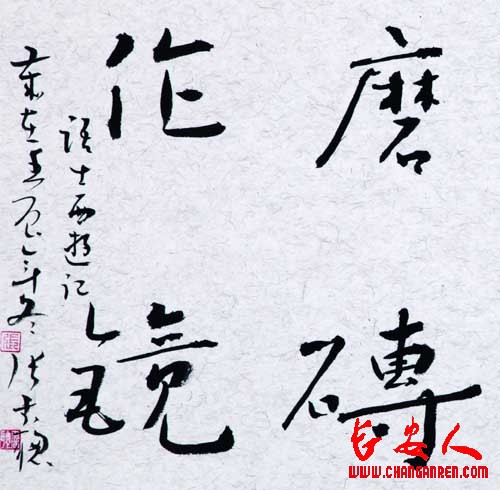 磨磚
作鏡
語出西遊記
歲在壬辰年冬
长安人
WWW.CHANGANREN.COM